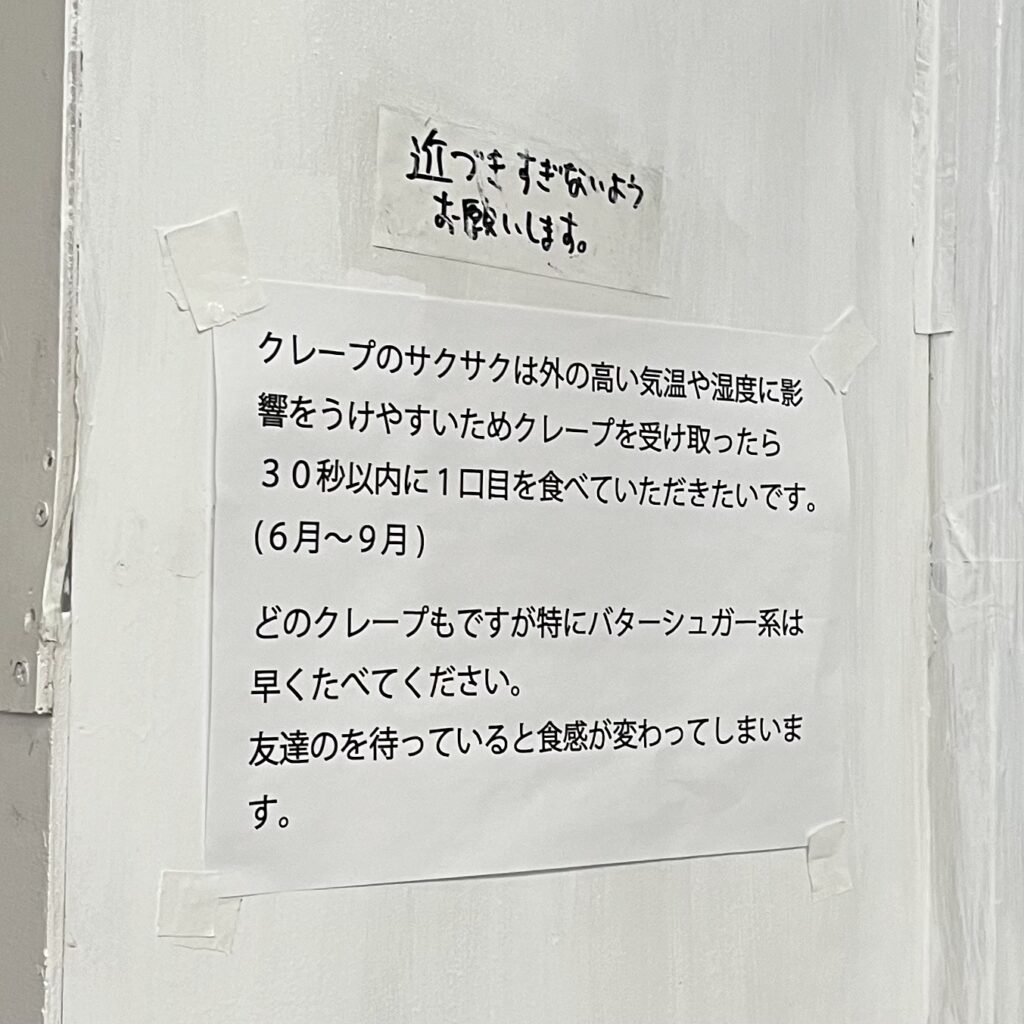 近づきすぎないよう
お願いします。
クレープのサクサクは外の高い気温や湿度に影
響をうけやすいためクレープを受け取ったら
３０秒以内に１口目を食べていただきたいです。
(６月～９月)
どのクレープもですが特にバターシュガー系は
早くたべてください。
友達のを待っていると食感が変わってしまいま
す。